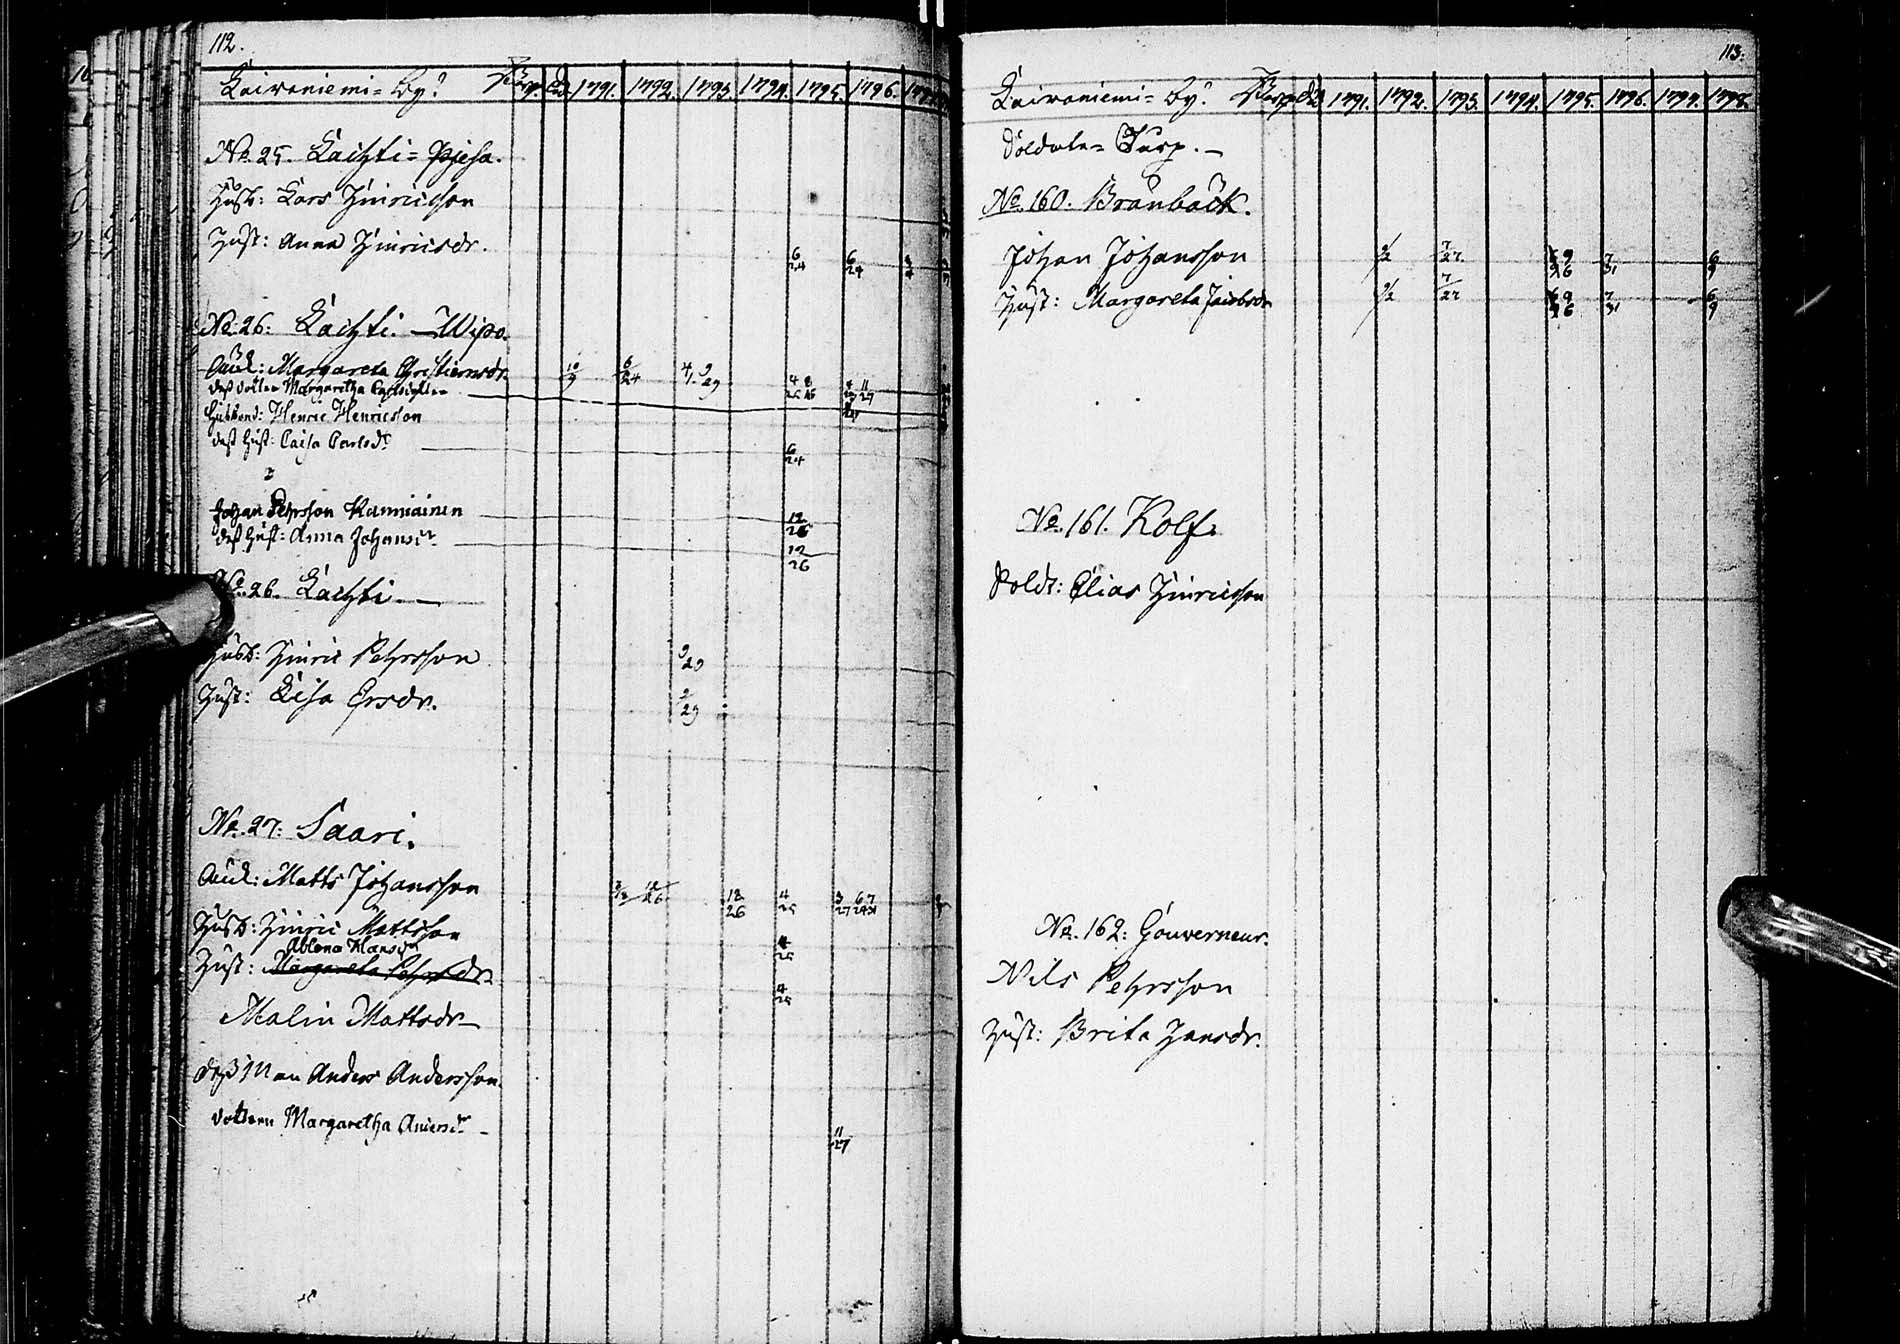 112.
Kaiwoniemi= by? 1791. 1792. 1793. 1794. 1795. 1796.
No. 25. Lachti=
Husb: Lars Hinricsson
Hust: Anna Hinricsdr.
6/24 6/24
No. 26: Lachti. — Wipo.
Enk: Margareta Christiernsdr. 10/9 6/24
dess dotter Margaretha
Husbond: Henric Henricsson
dess Hust: Caisa Carlsdr
6/24
Johan Pehrsson
dess Hust: Anna Johansdr
12/26
12/26
No. 26. Lachti. —
Husb: Hinric Pehrsson 9/29
Hust: Lisa Ersdr. 9/29
No. 27: Saari.
Enkl: Matts Johansson 12/26 4/25
Husb: Hinric Mattsson 4/25
Hust: Margareta Pehrsdr. 4/25
Malin Mattsdr
dess Man Anders Andersson
dottern Margaretha Andersdr
11/27
113.
Kaiwoniemi= by? 1791. 1792. 1793. 1794. 1795. 1796. 1797. 1798.
Soldate= Torp. —
No. 160. Brånbäck.
Johan Johansson 7/27 7/31 6/9
Hust: Margareta Jacobsdr 7/27 7/31 6/9
No. 161. Kolf.
Soldt: Elias Hinricsson
No. 162: Gouverneur.
Nils Pehrsson
Hust: Brita Hansdr.